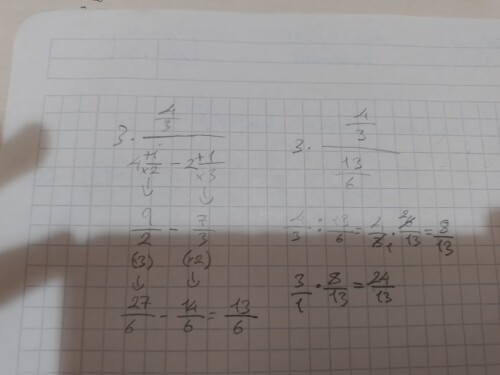 3 · (4/3) / (4 +1/×2 − 2 +1/×3)
↓ ↓
9/2 − 7/3
(3) (×2)
↓ ↓
27/6 − 14/6 = 13/6
3 · (4/3) / (13/6)
4/3 : 13/6 = 4/3 1 · 2 6/13 = 8/13
3/1 · 8/13 = 24/13